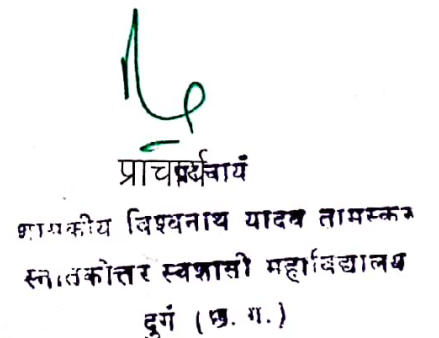 प्राचार्य
शासकीय विश्वनाथ यादव तामस्कर
स्नातकोत्तर स्वशासी महाविद्यालय
दुर्ग (छ. ग.)